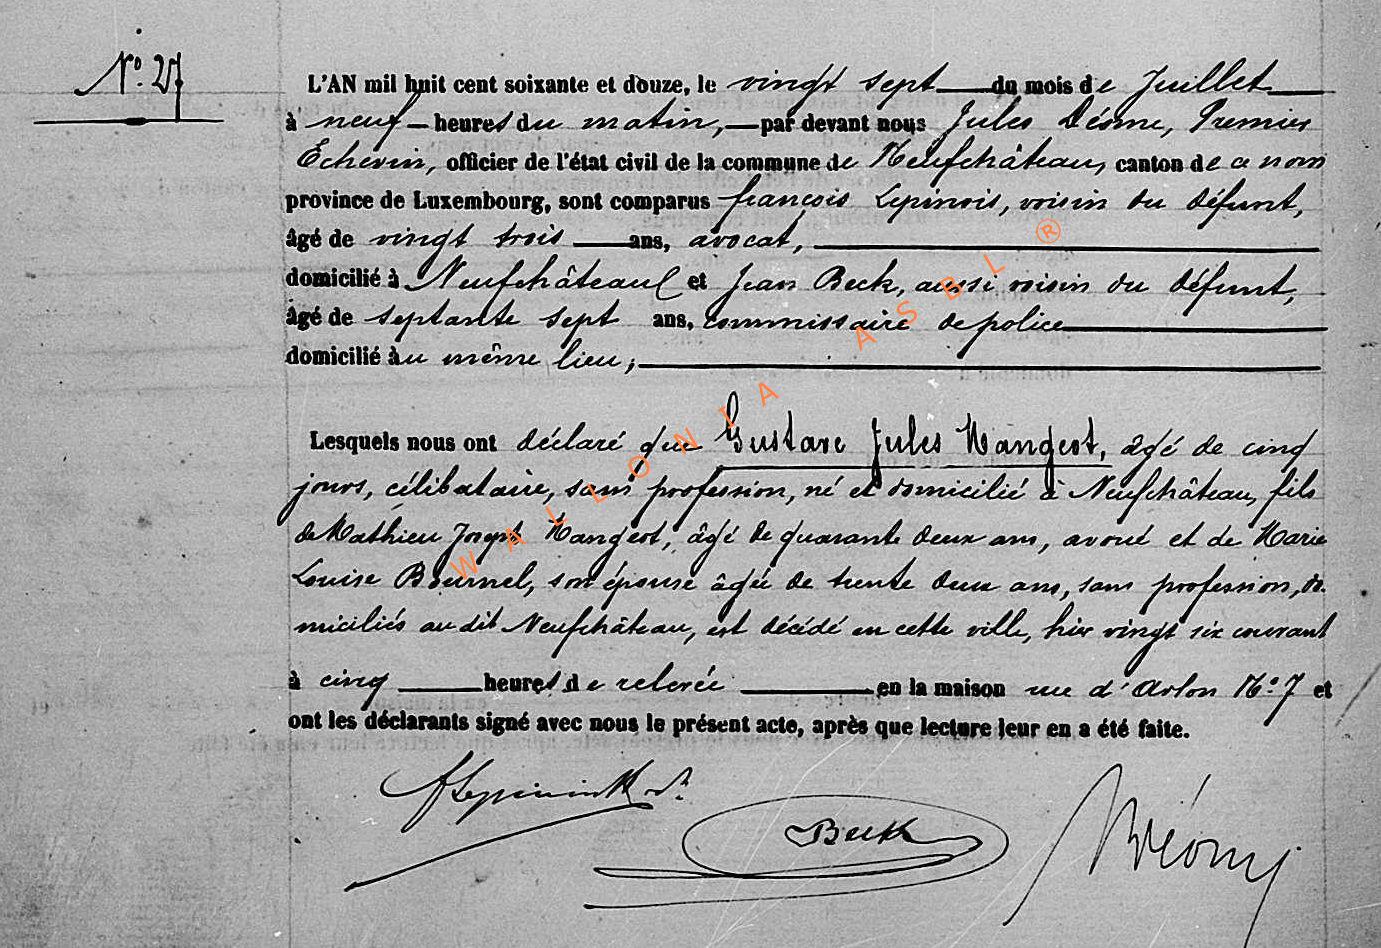 N° 27
L'AN mil huit cent soixante et douze, le vingt sept du mois de Juillet
à neuf heures du matin, par devant nous Jules Désme, Premier
Echevin, officier de l'état civil de la commune de Neufchâteau, canton de ce nom
province de Luxembourg, sont comparus françois Lepinois, voisin du défunt,
âgé de vingt trois ans, avocat,
domicilié à Neufchâteau et Jean Beck, aussi voisin du défunt,
âgé de septante sept ans, commissaire de police
domicilié au même lieu,
Lesquels nous ont déclaré que Gustave Jules Mangeot, agé de cinq
jours, célibataire, sans profession, né et domicilié à Neufchâteau, fils
de Mathieu Joseph Mangeot, âgé de quarante deux ans, avoué et de Marie
Louise Bournel, son épouse âgée de trente deux ans, sans profession, do-
miciliés au dit Neufchâteau, est décédé en cette ville, hier vingt six courant
à cinq heures de relevée en la maison rue d'Arlon N° 7 et
ont les déclarants signé avec nous le présent acte, après que lecture leur en a été faite.
Beck
WALLONIA ASBL ®